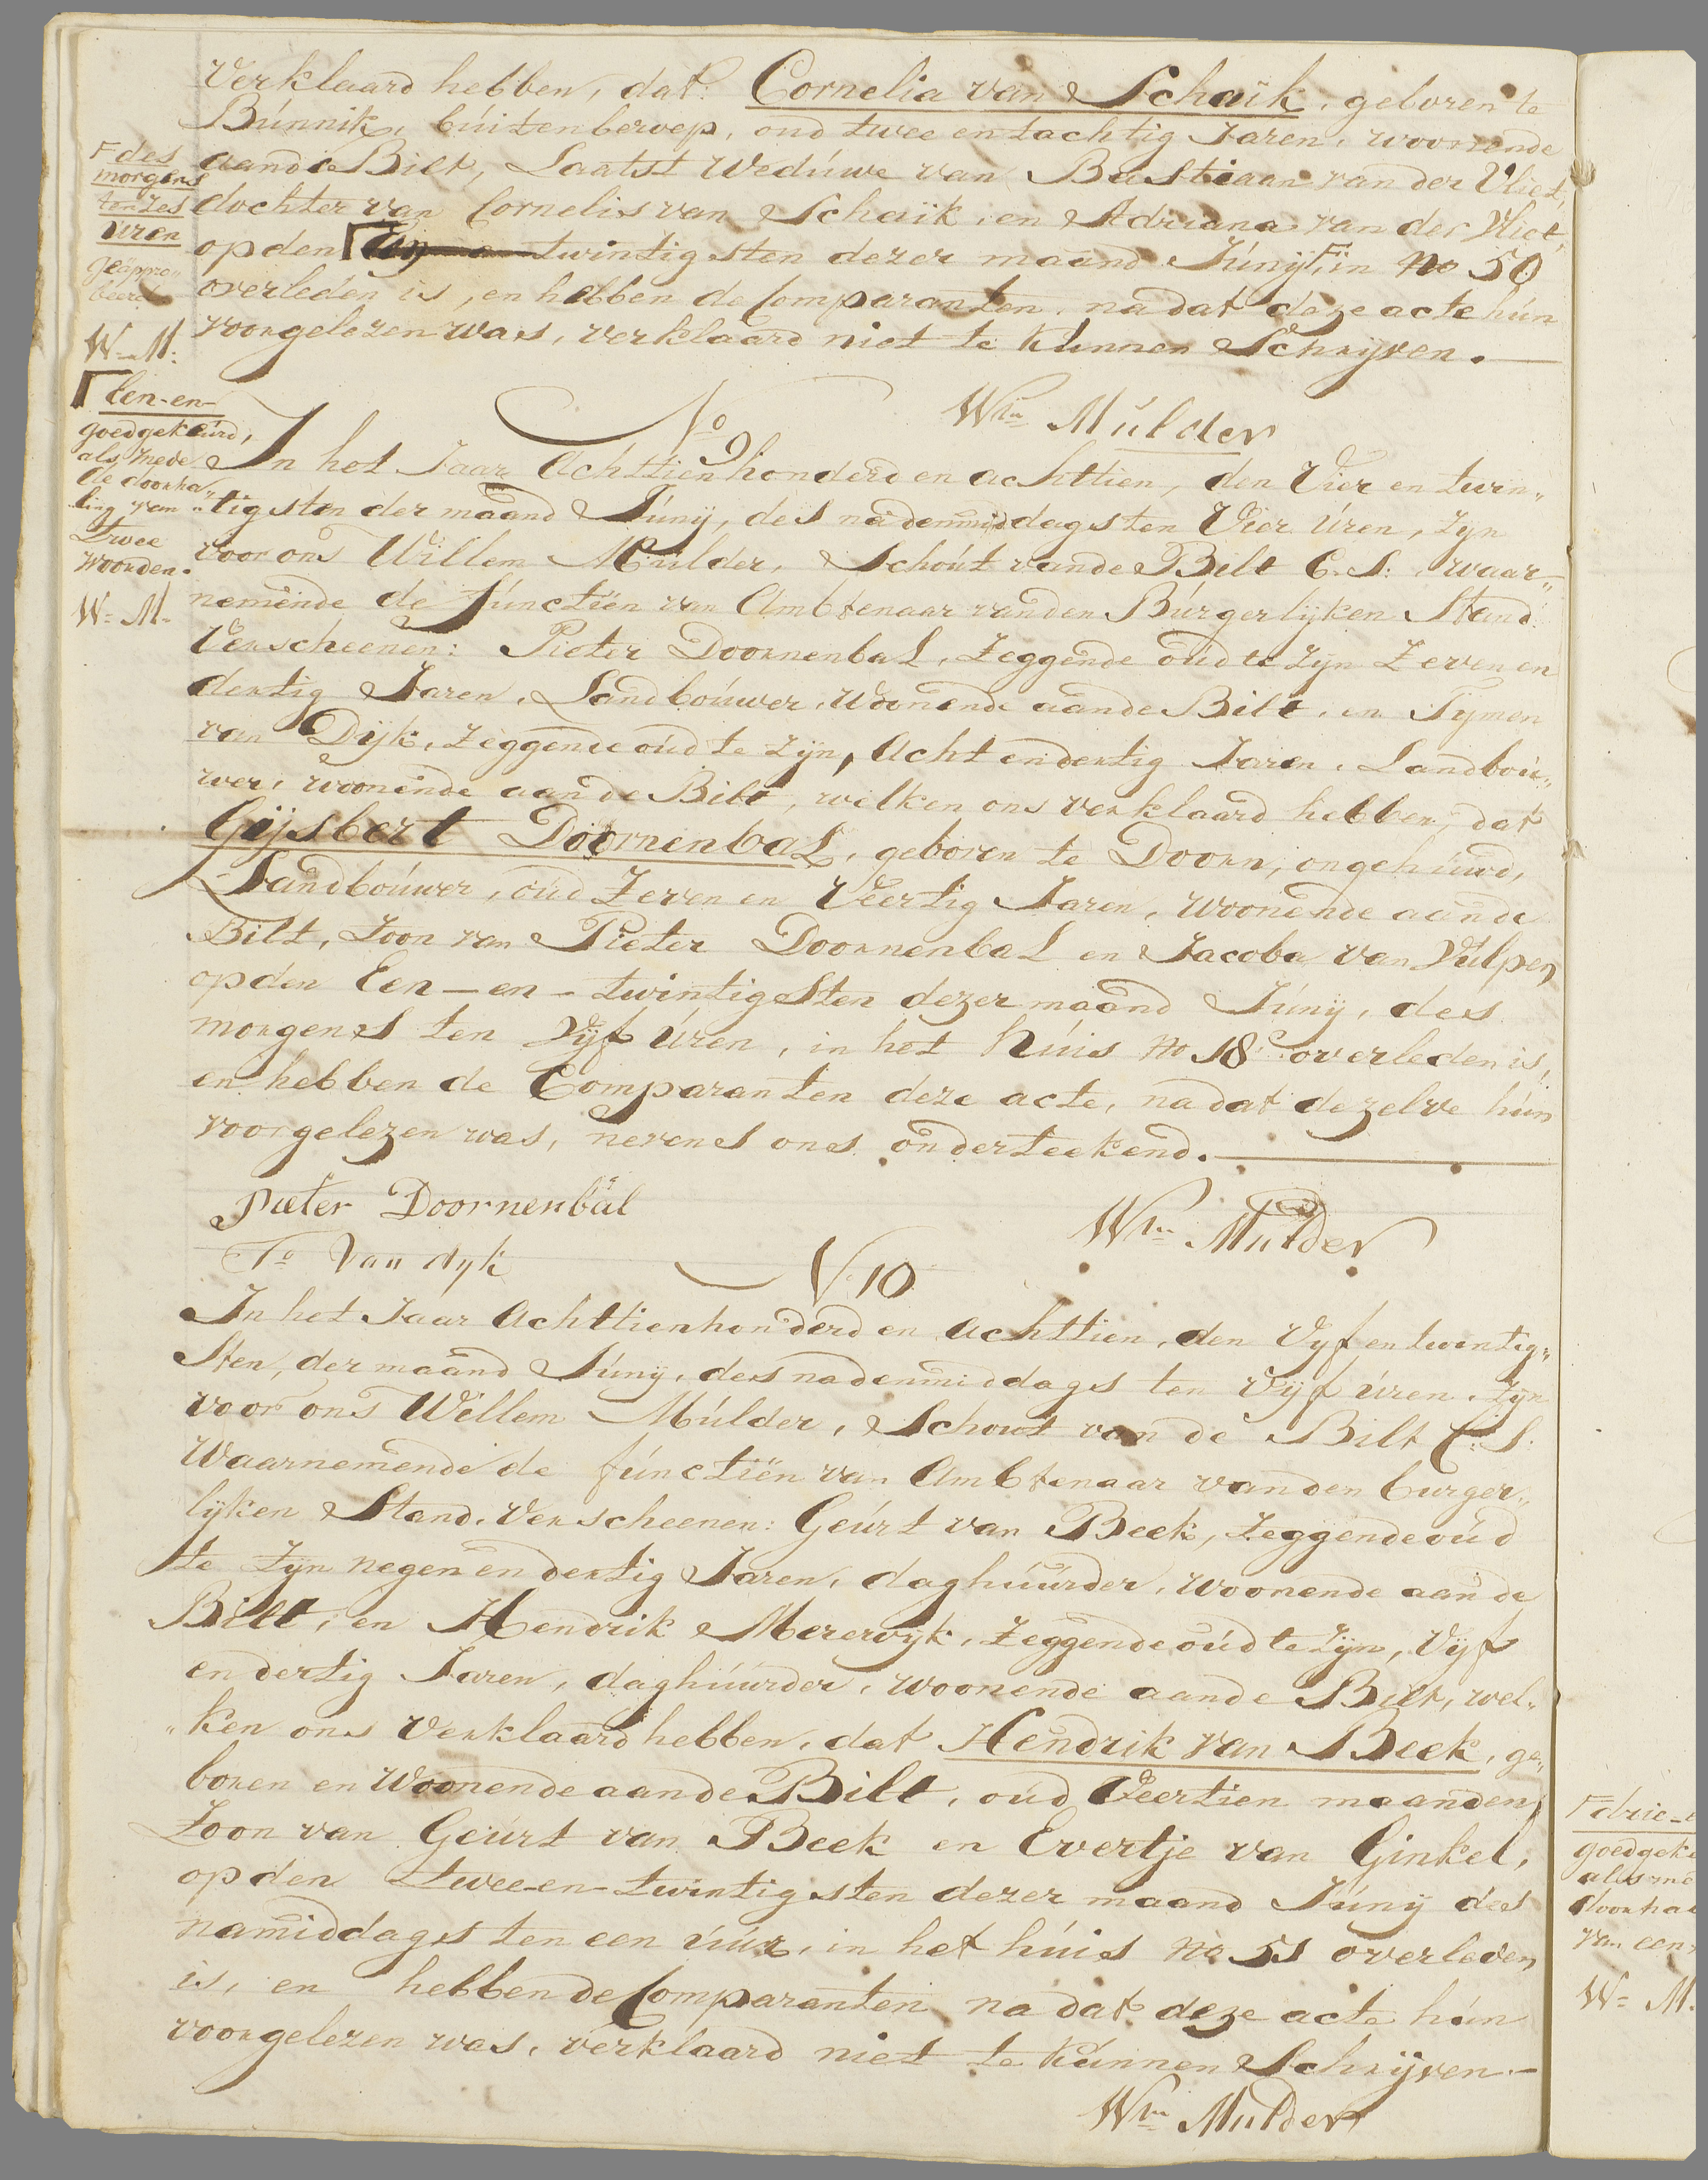 Verklaard hebben, dat: Cornelia van Schaik, geboren te
Bunnik, buiten beroep, oud twee en tachtig Jaren, woonende
aan de Bilt, Laatst Weduwe van Bastiaan van der Vliet,
dochter van Cornelis van Schaik, en Adriana van der Vliet,
op den twintigsten dezer maand Junij, in No 50
overleden is, en hebben de Comparanten, na dat deze acte hun
voorgelezen was, verklaard niet te kunnen Schrijven.
des
morgens
ten zes
uren
geäppro"
beerd
W. M.
Een-en-
goedgekeurd,
als mede
de doorha"
ling van
Twee
woorden.
W= M.
Wm Mulder
No 9
In het Jaar Achttienhonderd en achttien, den Vier en twin"
"tigsten der maand Junij, des nadenmiddags ten Vier Uren, zyn
voor ons Willem Mulder, Schout van de Bilt C.S: waar"
nemende de functiën van Ambtenaar van den Burgerlijken Stand
Verscheenen: Pieter Doornenbal, Zeggende oud te zijn Zeven en
dertig Jaren, Landbouwer, Woonende aan de Bilt, en Tijmen
van Dijk, Zeggende oud te zijn, Acht en dertig Jaren, Landbou"
wer, woonende aan de Bilt, welken ons verklaard hebben, dat
Gijsbert Doornenbal, geboren te Doorn, ongehuwd,
Landbouwer, oud Zeven en Veertig Jaren, woonende aan de
Bilt, Zoon van Pieter Doornenbal en Jacoba van Vulpen
op den Een-en-twintigsten dezer maand Junij, des
morgens ten Vijf Uren, in het Huis No 18 overleden is,
en hebben de Comparanten deze acte, na dat dezelve hun
voorgelezen was, nevens ons onderteekend.
Pieter Doornenbal
Wm Mulder
Ts Van dijk
N 10
In het Jaar Achttienhonderd en Achttien, den Vyf en twintig"
sten, der maand Junij, des nadenmiddags ten Vijf uren, zijn
voor ons Willem Mulder, Schout van de Bilt C: S:
Waarnemende de functiën van Ambtenaar van den burger"
lijken Stand, Verscheenen: Geurt van Beek, Zeggende oud
te zijn negen en dertig Jaren, daghuurder, woonende aan de
Bilt, en Hendrik Merewijk, Zeggende oud te zijn, Vijf
en dertig Jaren, daghuurder, woonende aan de Bilt, wel"
"ken ons Verklaard hebben, dat Hendrik van Beek, ge"
boren en Woonende aan de Bilt, oud Veertien maanden,
Zoon van Geurt van Beek en Evertje van Ginkel,
op den twee-en-twintigsten dezer maand Junij des
namiddags ten een uur, in het huis No 51 overleden
is, en hebben de Comparanten na dat deze acte hun
voorgelezen was, verklaard niet te kunnen Schrijven.-
Wm Mulder
drie-e
goedgeke
als me
doorha
van een
W= M.